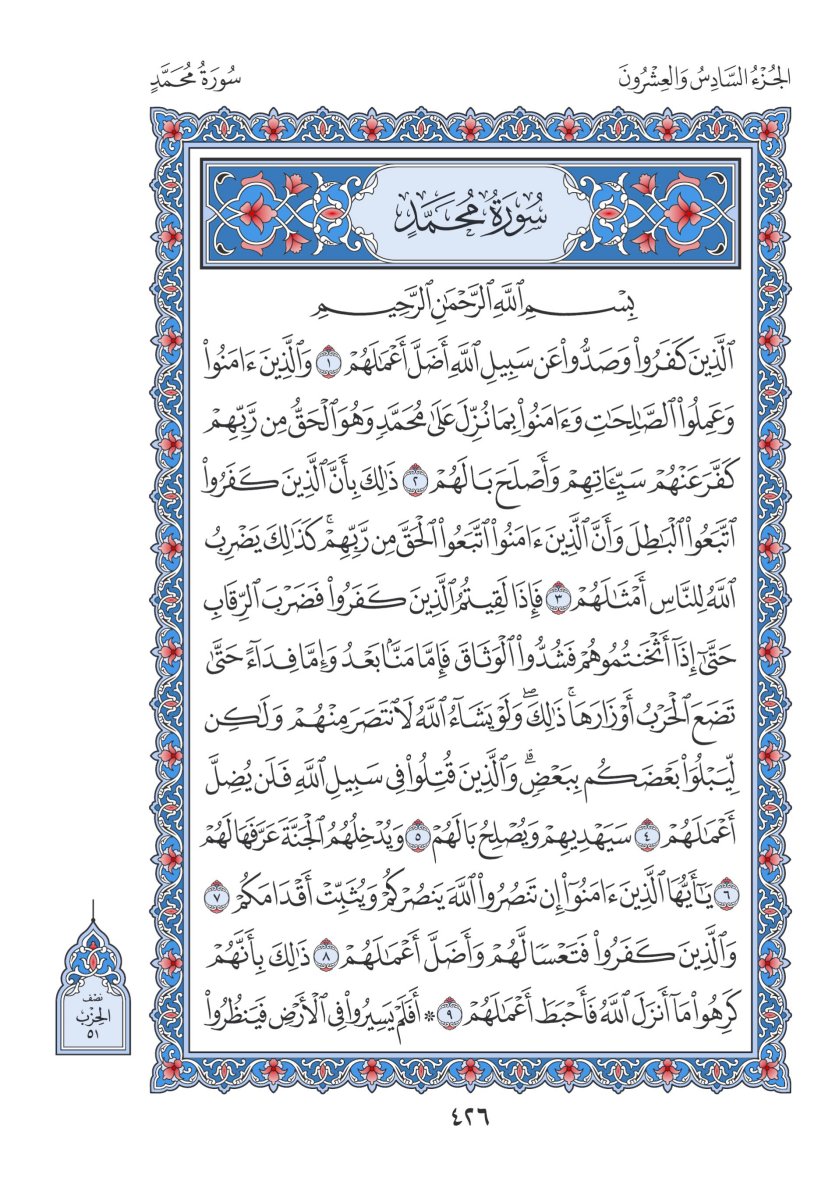 الجُزْءُ السَّادِسُ وَالعِشْرُونَ
سُورَةُ مُحَمَّدٍ
سُورَةُ مُحَمَّدٍ
بِسْمِ ٱللَّهِ ٱلرَّحْمَٰنِ ٱلرَّحِيمِ
ٱلَّذِينَ كَفَرُوا۟ وَصَدُّوا۟ عَن سَبِيلِ ٱللَّهِ أَضَلَّ أَعْمَٰلَهُمْ ١ وَٱلَّذِينَ ءَامَنُوا۟
وَعَمِلُوا۟ ٱلصَّٰلِحَٰتِ وَءَامَنُوا۟ بِمَا نُزِّلَ عَلَىٰ مُحَمَّدٍ وَهُوَ ٱلْحَقُّ مِن رَّبِّهِمْ
كَفَّرَ عَنْهُمْ سَيِّـَٔاتِهِمْ وَأَصْلَحَ بَالَهُمْ ٢ ذَٰلِكَ بِأَنَّ ٱلَّذِينَ كَفَرُوا۟
ٱتَّبَعُوا۟ ٱلْبَٰطِلَ وَأَنَّ ٱلَّذِينَ ءَامَنُوا۟ ٱتَّبَعُوا۟ ٱلْحَقَّ مِن رَّبِّهِمْۚ كَذَٰلِكَ يَضْرِبُ
ٱللَّهُ لِلنَّاسِ أَمْثَٰلَهُمْ ٣ فَإِذَا لَقِيتُمُ ٱلَّذِينَ كَفَرُوا۟ فَضَرْبَ ٱلرِّقَابِ
حَتَّىٰٓ إِذَآ أَثْخَنتُمُوهُمْ فَشُدُّوا۟ ٱلْوَثَاقَ فَإِمَّا مَنًّۢا بَعْدُ وَإِمَّا فِدَآءً حَتَّىٰ
تَضَعَ ٱلْحَرْبُ أَوْزَارَهَاۚ ذَٰلِكَۖ وَلَوْ يَشَآءُ ٱللَّهُ لَٱنتَصَرَ مِنْهُمْ وَلَٰكِن
لِّيَبْلُوَا۟ بَعْضَكُم بِبَعْضٍۗ وَٱلَّذِينَ قُتِلُوا۟ فِى سَبِيلِ ٱللَّهِ فَلَن يُضِلَّ
أَعْمَٰلَهُمْ ٤ سَيَهْدِيهِمْ وَيُصْلِحُ بَالَهُمْ ٥ وَيُدْخِلُهُمُ ٱلْجَنَّةَ عَرَّفَهَا لَهُمْ
٦ يَٰٓأَيُّهَا ٱلَّذِينَ ءَامَنُوٓا۟ إِن تَنصُرُوا۟ ٱللَّهَ يَنصُرْكُمْ وَيُثَبِّتْ أَقْدَامَكُمْ ٧
وَٱلَّذِينَ كَفَرُوا۟ فَتَعْسًا لَّهُمْ وَأَضَلَّ أَعْمَٰلَهُمْ ٨ ذَٰلِكَ بِأَنَّهُمْ
كَرِهُوا۟ مَآ أَنزَلَ ٱللَّهُ فَأَحْبَطَ أَعْمَٰلَهُمْ ٩ * أَفَلَمْ يَسِيرُوا۟ فِى ٱلْأَرْضِ فَيَنظُرُوا۟
نصْف
الحِزْبُ
٥١
٤٢٦